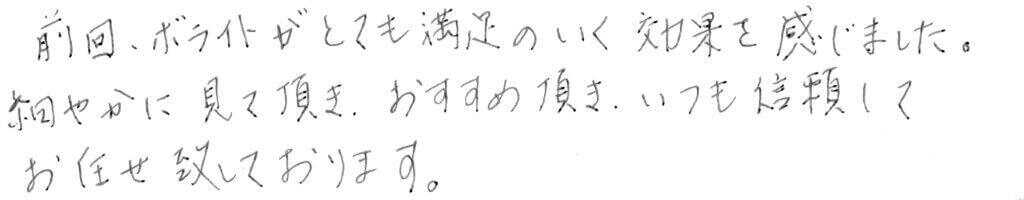 前回、ボライトがとても満足のいく効果を感じました。
細やかに見て頂き、おすすめ頂き、いつも信頼して
お任せ致しております。